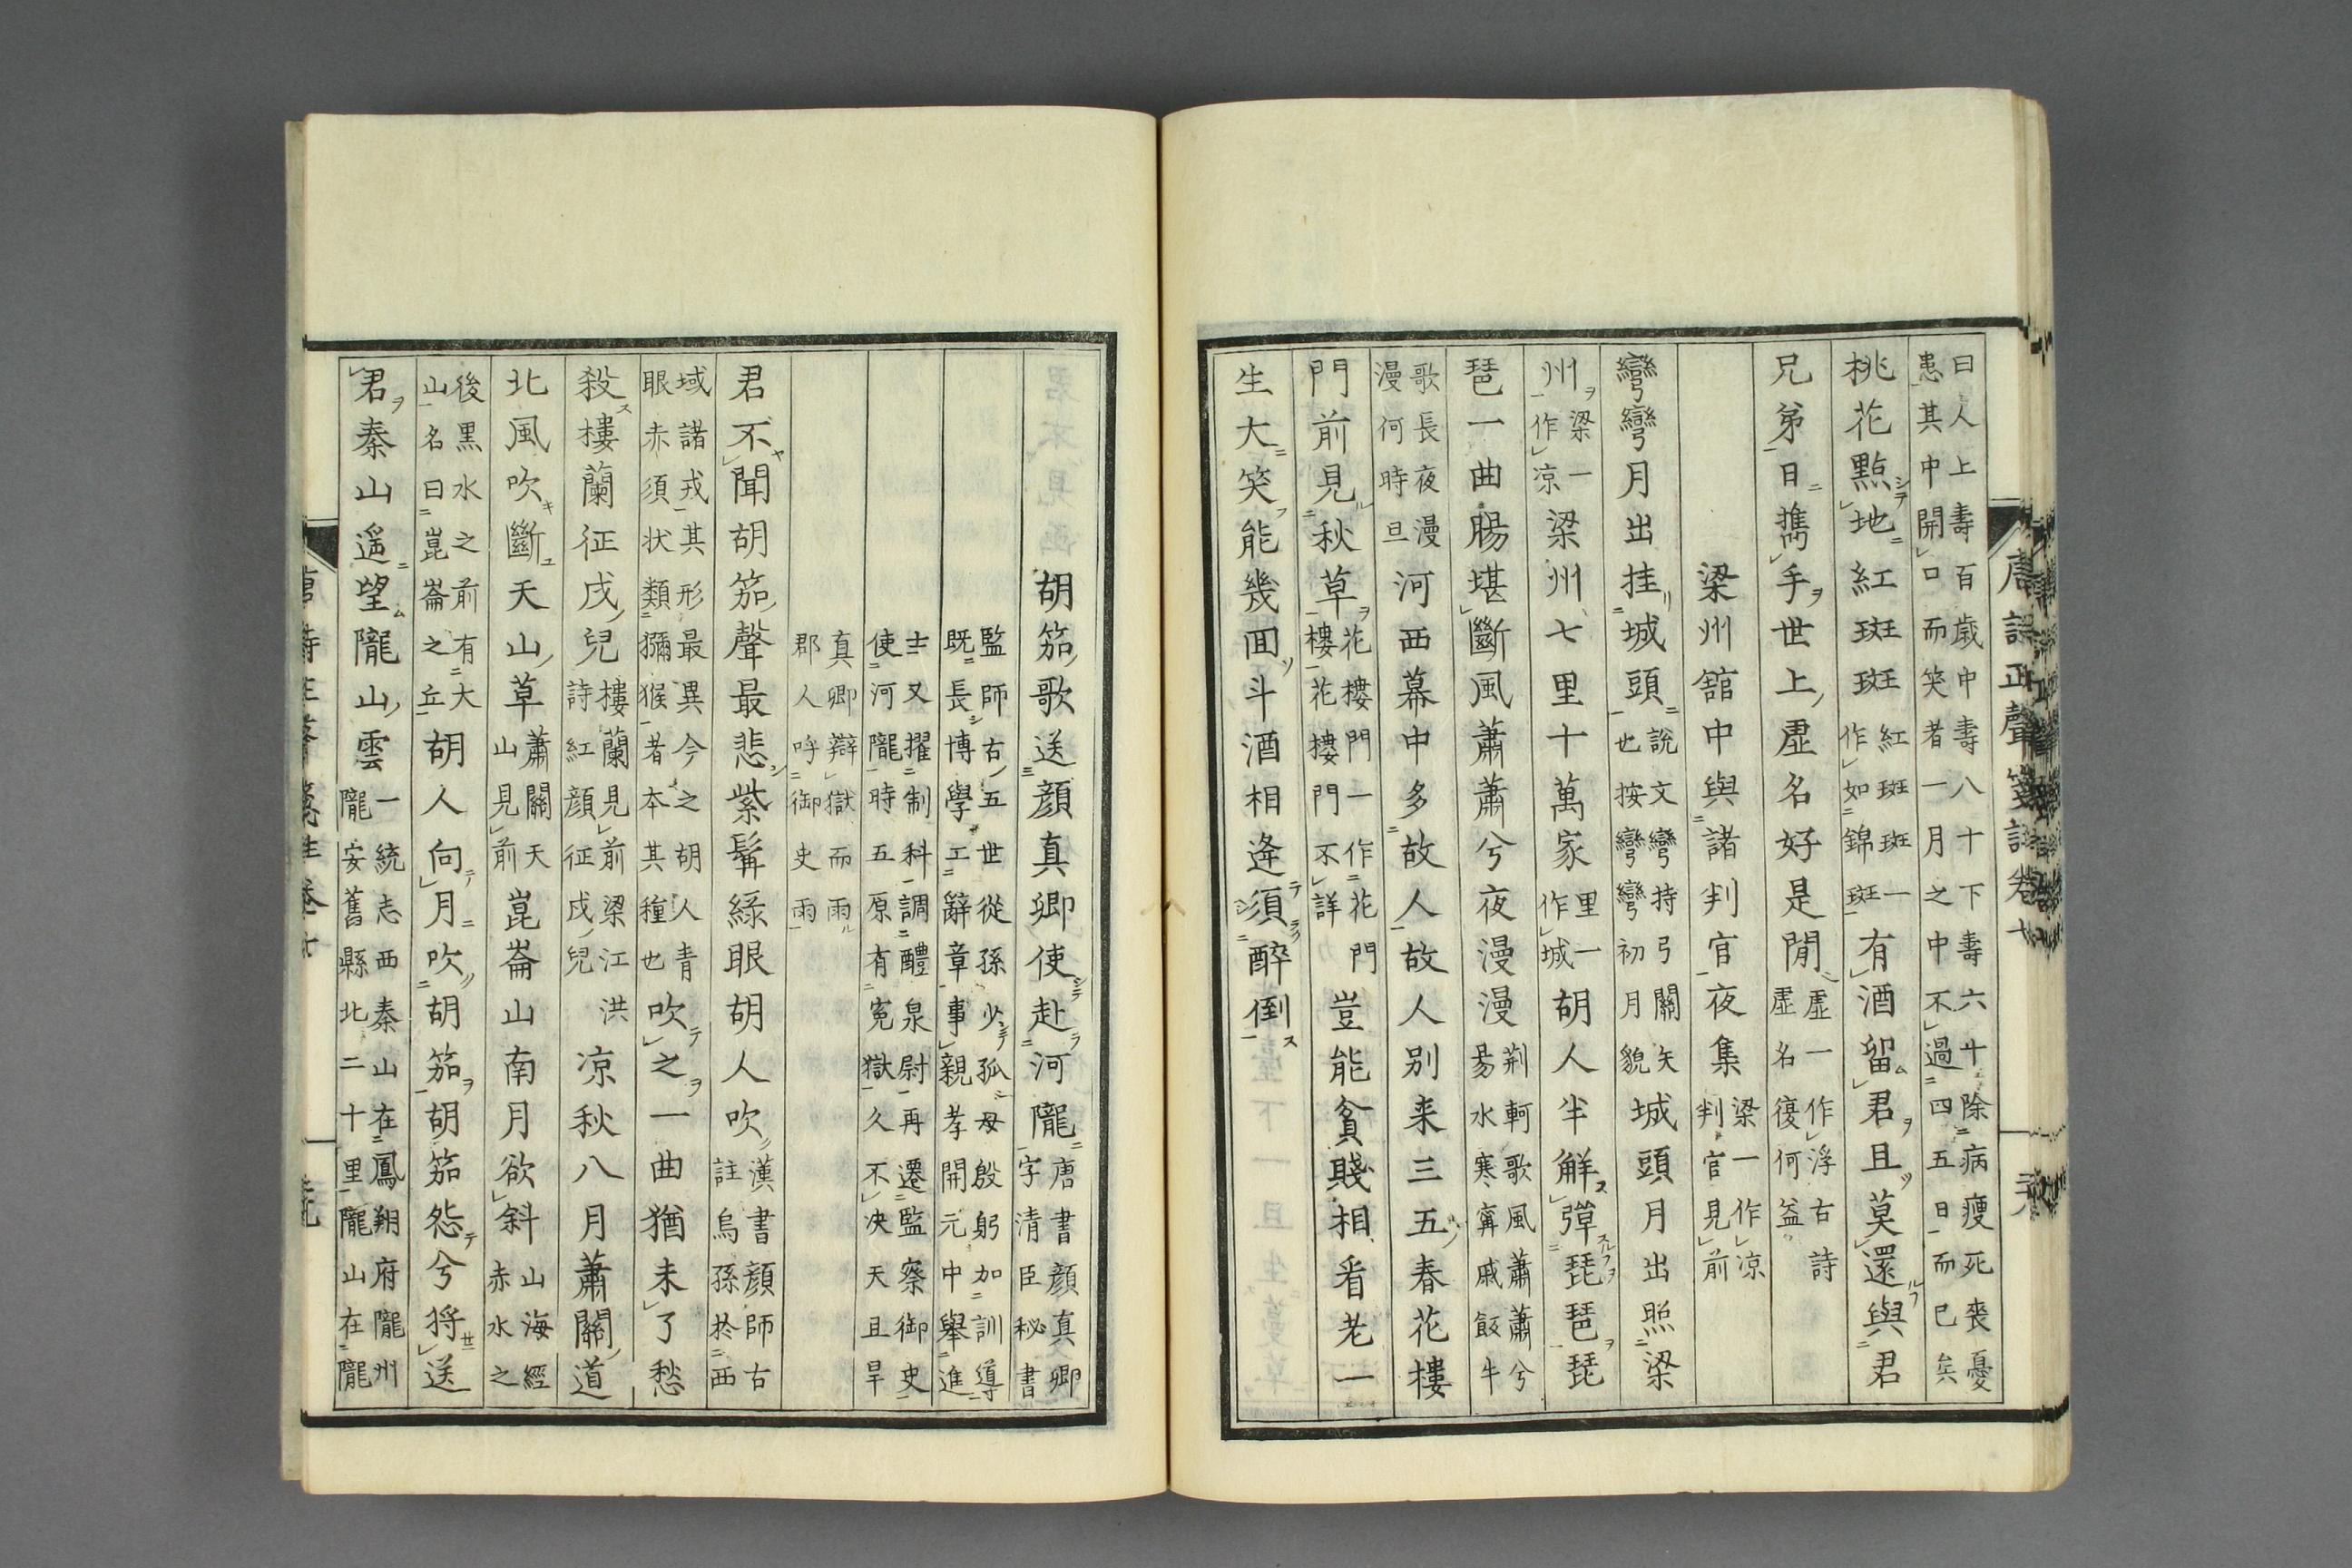 曰人上壽百歲中壽八十下壽六十除病瘦死喪憂
患其中開口而笑者一月之中不過四五日而已矣
桃花點地紅斑斑
紅斑斑一
作如錦斑
有酒留君且莫還與君
兄弟日攜手世上虛名好是閒
虛一作浮古詩
虛名復何益
梁州館中與諸判官夜集
梁一作凉
判官見前
彎彎月出挂城頭
說文彎持弓關矢
也按彎彎初月貌
城頭月出照梁
州
梁一
作凉
梁州七里十萬家
里一
作城
胡人半解彈琵琶琵
琶一曲腸堪斷風蕭蕭兮夜漫漫
荊軻歌風蕭蕭兮
易水寒甯戚飯牛
歌長夜漫
漫何時旦
河西幕中多故人故人别来三五春花樓
門前見秋草
花樓門一作花門
樓花樓門不詳
豈能貧賤相看老一
生大笑能幾回斗酒相逢須醉倒
胡笳歌送顔真卿使赴河隴
唐書顔真卿
字清臣秘書
監師古五世從孫少孤母殷躬加訓導
既長博學工辭章事親孝開元中舉進
士又擢制科調醴泉尉再遷監察御史
使河隴時五原有冤獄久不决天且旱
真卿辯獄而雨
郡人呼御史雨
君不聞胡笳聲最悲紫髯綠眼胡人吹
漢書顔師古
註烏孫於西
域諸戎其形最異今之胡人青
眼赤須状類獼猴者本其種也
吹之一曲猶未了愁
殺樓蘭征戍兒
樓蘭見前梁江洪
詩紅顔征戍兒
凉秋八月蕭關道
北風吹斷天山草
蕭關天
山見前
崑崙山南月欲斜
山海經
赤水之
後黒水之前有大
山名曰崑崙之丘
胡人向月吹胡笳胡笳怨兮将送
君秦山遥望隴山雲
一統志西秦山在鳳翔府隴州
隴安舊縣北二十里隴山在隴